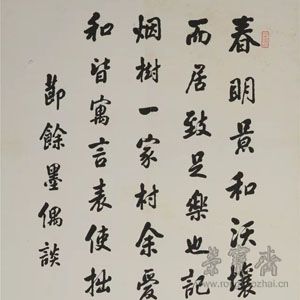 春明景和沃壤
而居致足樂也記
烟樹一家村余愛
和皆寓言表使拙
節餘墨偶談
榮寶齋
www.rongbaozhai.cn